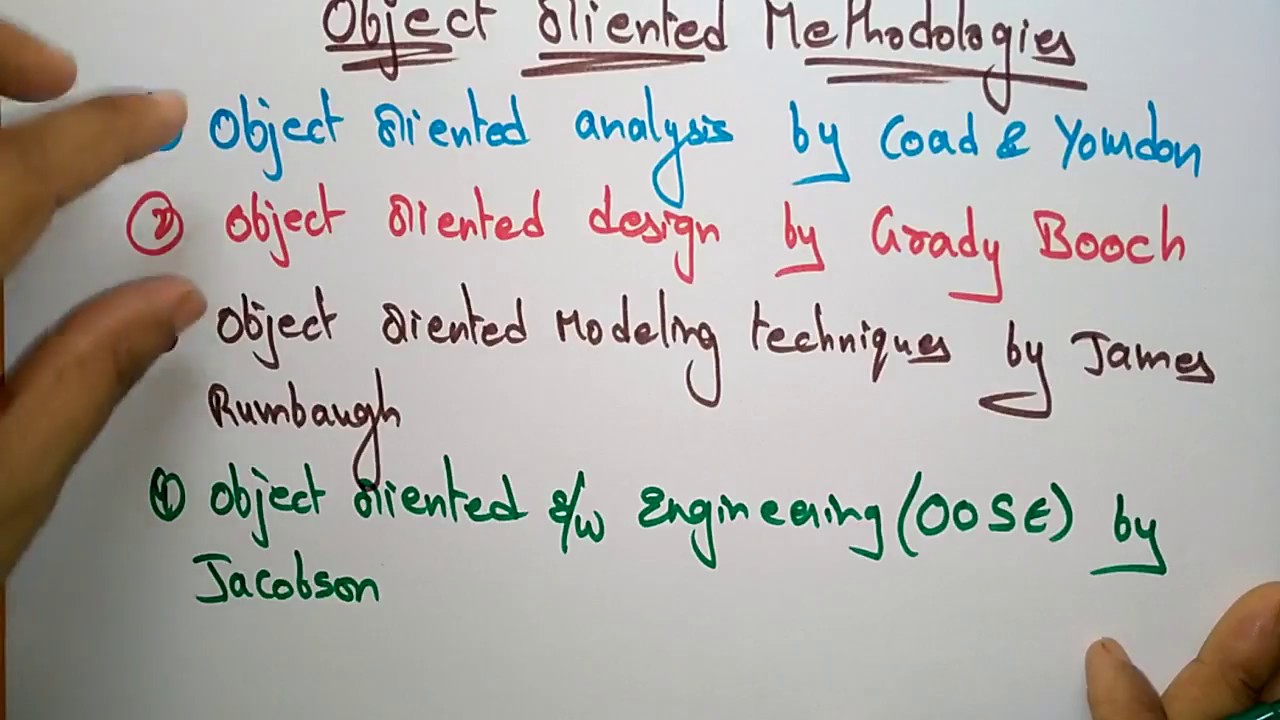 Object oriented Methodologies
Object oriented analysis by Coad & Yourdon
② object oriented design by Grady Booch
Object oriented Modeling techniques by James
Rumbaugh
④ object oriented s/w Engineering (OOSE) by
Jacobson